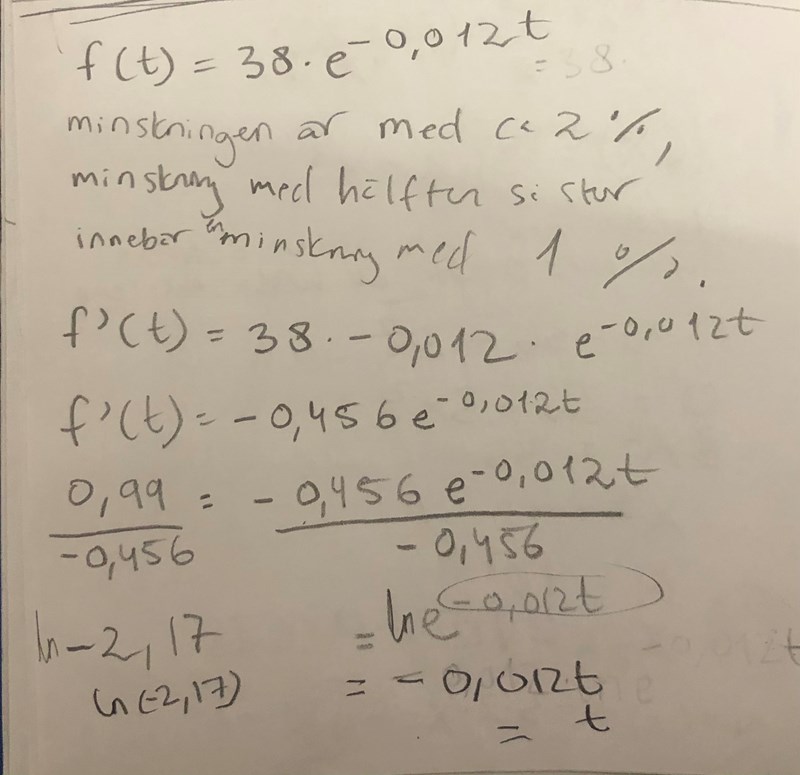 f(t) = 38 · e^-0,012t
minskningen är med ca 2 %,
minskning med hälften så stor
innebär en minskning med 1 %.
f'(t) = 38 · -0,012 · e^-0,012t
f'(t) = -0,456 e^-0,012t
0,99 / -0,456 = -0,456 e^-0,012t / -0,456
ln -2,17 = ln e^-0,012t
ln(-2,17) = -0,012t
= t